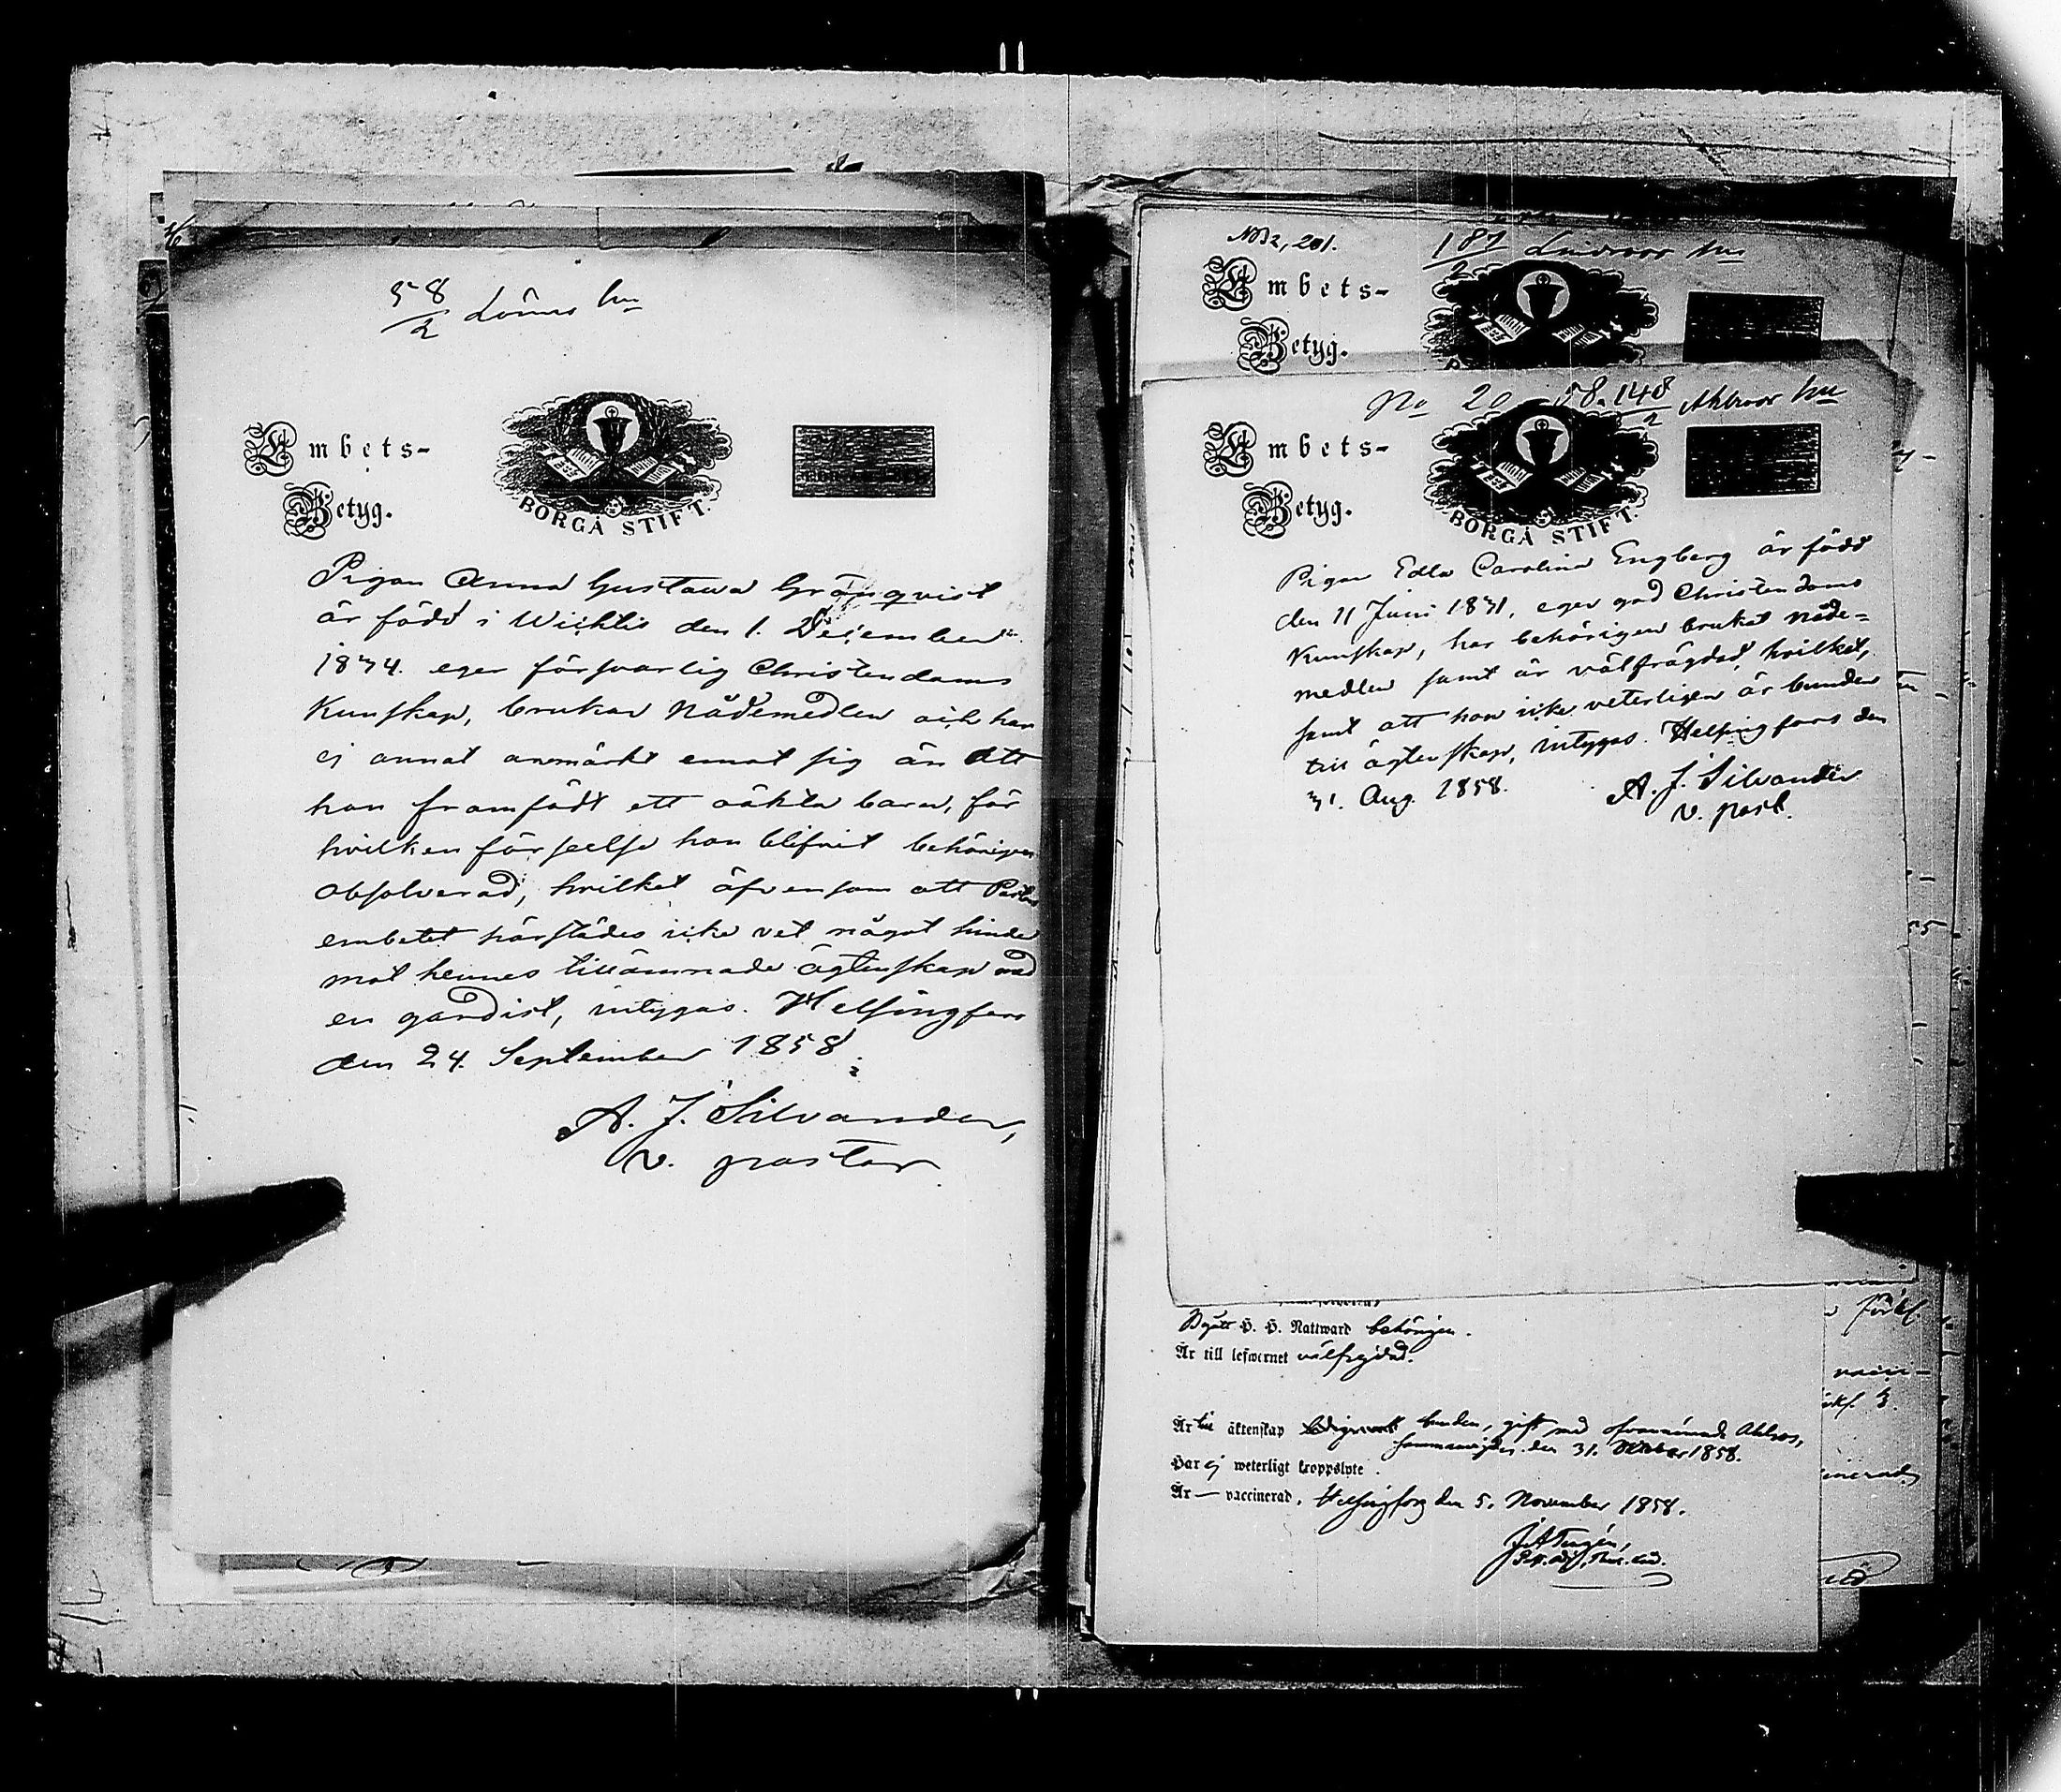 58/2 Lönns hu
Embets-
Betyg.
BORGÅ STIFT.
Pigan Anna Gustawa Grönqvist
är född i Wichtis den 1. December
1834. eger försvarlig Christendoms
Kunskap, brukar Nådemedlen och har
ej annat anmärkt emot sig än att
hon framfödt ett oäkta barn, för
hvilken förseelse hon blifvit behörigen
absolverad, hvilket äfvensom att Pastors
embetet härstädes icke vet något hinder
mot hennes tillämnade ägtenskap med
en gardist, intygas. Helsingfors
den 24. September 1858.
A. J. Silvander,
v. pastor
No 2, 201.
187/2 hu
Embets-
Betyg.
No 20 58.148/2 Ahlroos hu
Embets-
Betyg.
BORGÅ STIFT.
Pigan Edla Carolina Engberg är född
den 11 Juni 1831, eger god Christendoms
Kunskap, har behörigen brukat nåde-
medlen samt är välfrägdad, hvilket,
samt att hon icke veterligen är bunden
till ägtenskap, intygas. Helsingfors den
31. Aug. 1858.
A. J. Silvander
v. past.
Begått H. H. Nattward behörigen.
Är till lefwernet välfrejdad.
Är till äktenskap bunden, gift med ofvannämnde Ahlroos,
sammanvigder den 31. Oktober 1858.
Har ej weterligt kroppslyte.
Är — vaccinerad. Helsingfors den 5. November 1858.